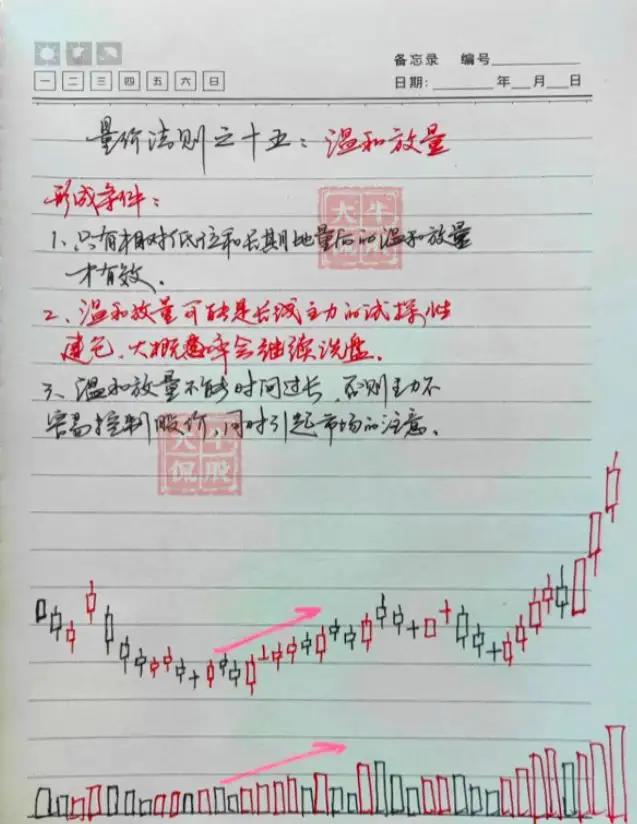 备忘录 编号
一 二 三 四 五 六 日
日期: 年 月 日
量价法则之十五：温和放量
形成条件：
大牛
侃股
1、只有相对低位和长期地量后的温和放量
才有效.
2、温和放量可能是长线主力的试探性
建仓,大概率会继续洗盘.
3、温和放量不能时间过长,否则主力不
容易控制股价,同时引起市场的注意.
大牛
侃股